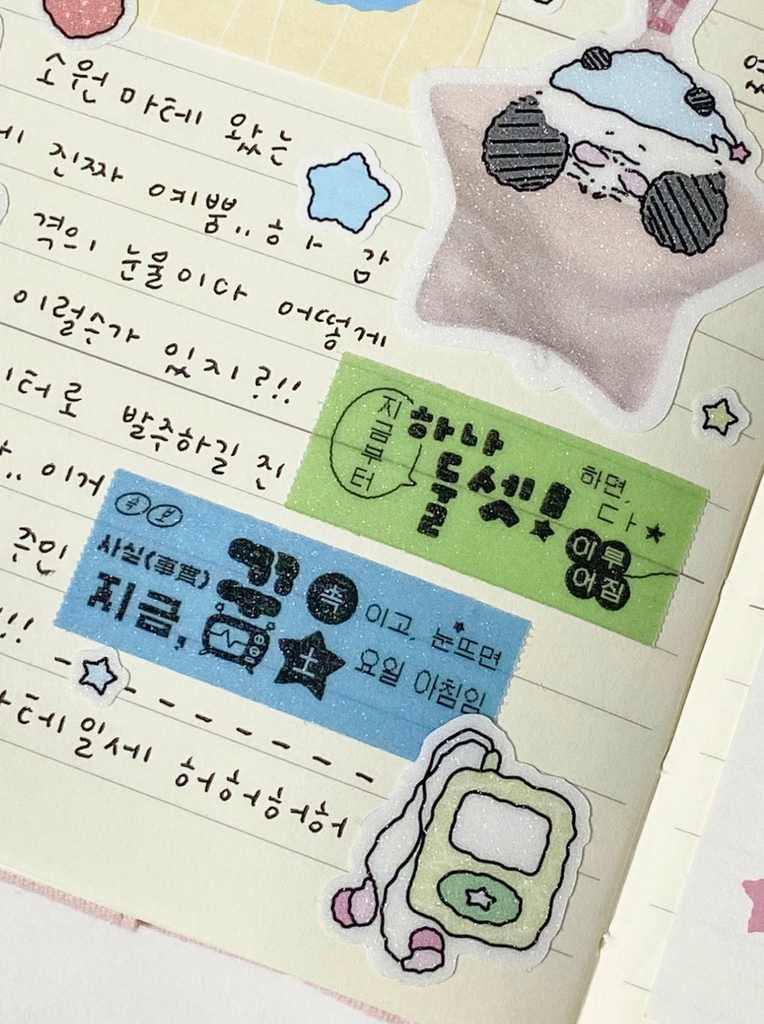 소원 마테 왔는
진짜 예쁨.. 하 감
격의 눈물이다 어떻게
이럴수가 있지?!!
터로 발주하길 진
.. 이거
지금부터
하나
둘셋!
하면,
다
이루
어짐
속보
사실(事實)
꿈속이고, 눈뜨면
지금,
土요일 아침임
!!!
마테일세 허허허허